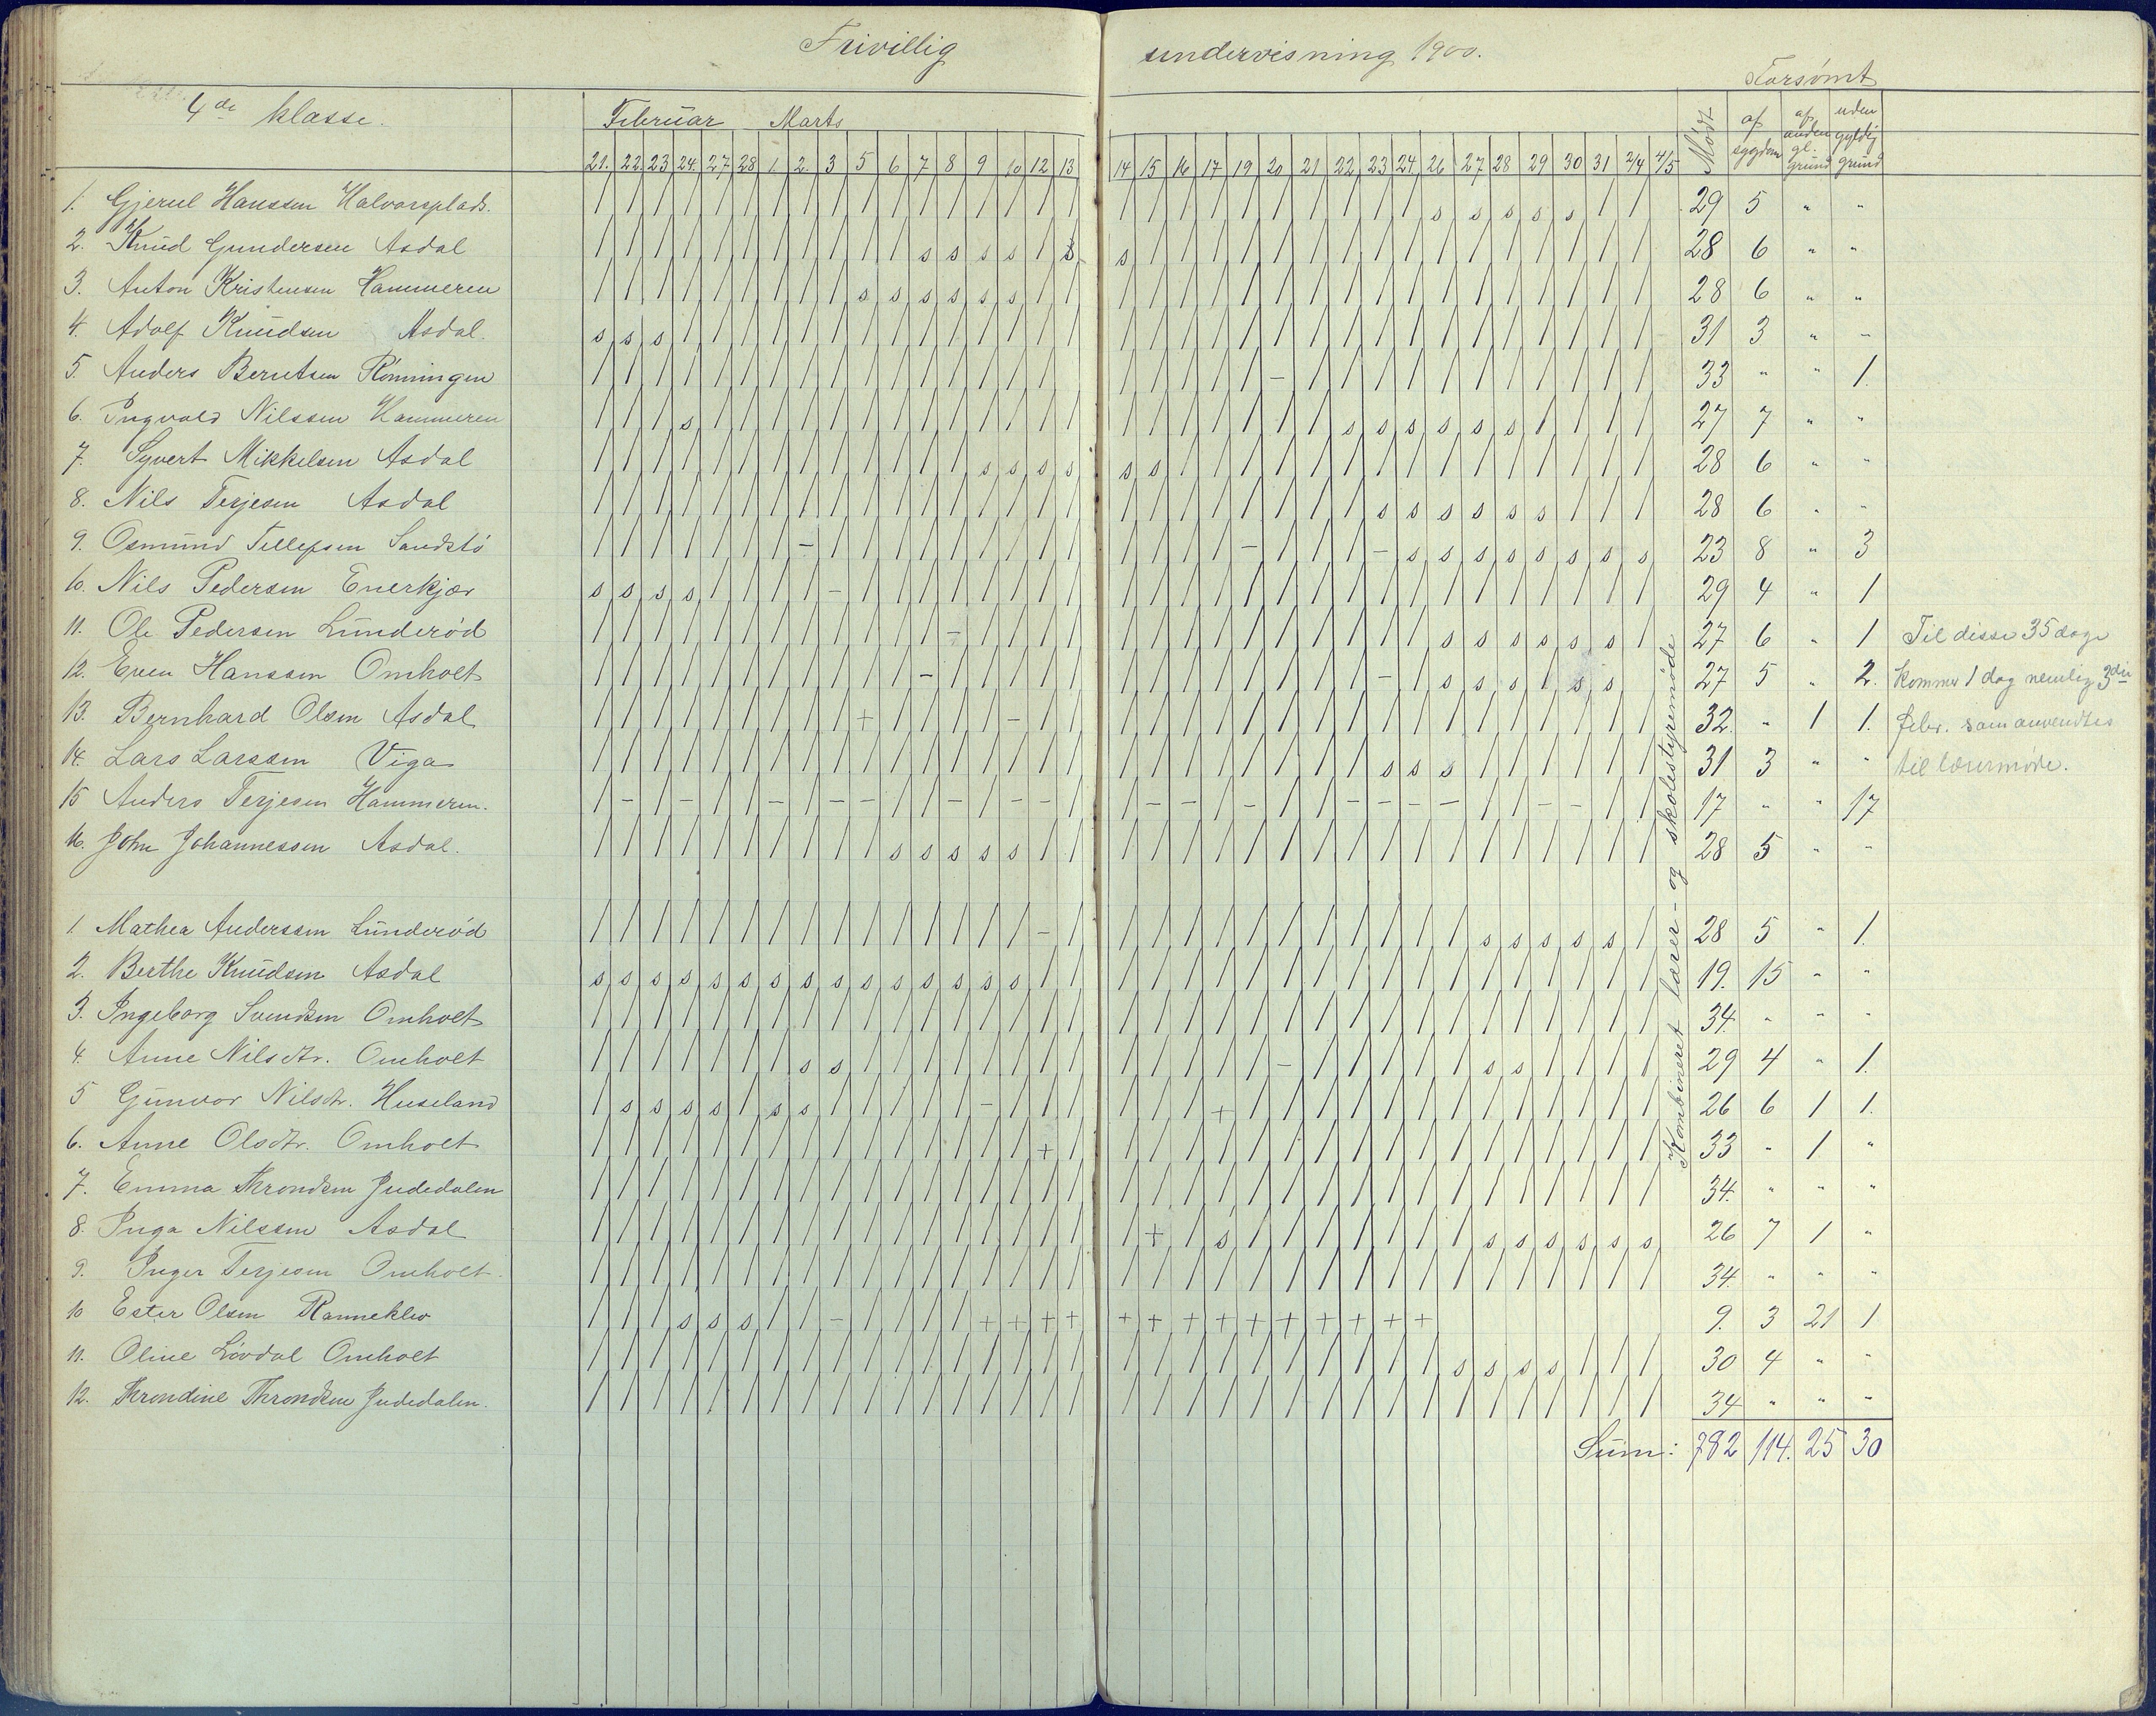 Frivillig undervisning 1900.
Forsømt
4de klasse. Februar Marts Mødt af sygdom af anden gl. grund uden gyldig grund
21. 22. 23 24. 27 28 1. 2. 3 5 6 7 8 9 10 12 13 14 15 16 17 19 20 21 22 23 24 26 27 28 29 30 31 2/4 4/5
1. Gjerul Hanssen Halvorsplads. / / / / / / / / / / / / / / / / / / / / / / / / / / / s s s s s / / 29 5 " "
2. Knud Gundersen Asdal / / / / / / / / / / / s s s s / s s / / / / / / / / / / / / / / / / 28 6 " "
3. Anton Kristensen Hammeren / / / / / / / / / s s s s s s / / / / / / / / / / / / / / / / / / / 28 6 " "
4. Adolf Knudsen Asdal. s s s / / / / / / / / / / / / / / / / / / / / / / / / / / / / / / / 31 3 " "
5. Anders Berntsen Rønningen / / / / / / / / / / / / / / / / / / / / / / – / / / / / / / / / / / 33 " " 1.
6. Ingvald Nilssen Hammeren / / / s / / / / / / / / / / / / / / / / / / / / s s s s s s / / / / 27 7 " "
7. Syvert Mikkelsen Asdal / / / / / / / / / / / / / s s s s s s / / / / / / / / / / / / / / / 28 6 " "
8. Nils Terjesen Asdal / / / / / / / / / / / / / / / / / / / / / / / / / s s s s s s / / / 28 6 " "
9. Osmund Tellefsen Sandstø / / / / / / / – / / / / / / / / / / / / / – / / / – s s s s s s s s 23 8 " 3
10. Nils Pedersen Enerkjær s s s s / / / / – / / / / / / / / / / / / / / / / / / / / / / / / / 29 4 " 1
11. Ole Pedersen Lunderød / / / / / / / / / / / / – / / / / / / / / / / / / / / s s s s s s / 27 6 " 1 Til disse 35 dage
12. Even Hanssen Omholt / / / / / / / / / / / – / / / / / / / / / / / / / – / s s s / s s 27 5 " 2. kommer 1 dag nemlig 3die
13. Bernhard Olsen Asdal / / / / / / / / / + / / / / – / / / / / / / / / / / / / / / / / / / 32. " 1 1. febr. som anvendtes
14. Lars Larssen Viga / / / / / / / / / / / / / / / / / / / / / / / / / s s s / / / / / / 31 3 " " til lærermøde.
15 Anders Terjesen Hammeren. / – / – / / – / – – / / – / – – / / – – / – / / – – – – / / – – / / 17 " " 17
16. John Johannessen Asdal. / / / / / / / / / / s s s s s / / / / / / / / / / / / / / / / / / / 28 5 " "
Kombineret lærer- og skolestyremøde
1. Mathea Anderssen Lunderød / / / / / / / / / / / / / / / – / / / / / / / / / / / / s s s s s / 28 5 " 1.
2. Berthe Knudsen Asdal s s s s s s s s s s s s s s s / / / / / / / / / / / / / / / / / / / 19. 15 " "
3. Ingeborg Svendsen Omholt / / / / / / / / / / / / / / / / / / / / / / / / / / / / / / / / / / 34. " " "
4. Anne Nilsdtr. Omholt / / / / / / / s s / / / / / / / / / / / / / – / / / / / s s / / / / 29 4 " 1.
5 Gunvor Nilsdtr. Huseland / s s s s / s s / / / / / – / / / / / / + / / / / / / / / / / / / / 26 6 1 1.
6. Anne Olsdtr. Omholt / / / / / / / / / / / / / / / + / / / / / / / / / / / / / / / / / / 33 " 1 "
7. Emma Throndsen Judedalen / / / / / / / / / / / / / / / / / / / / / / / / / / / / / / / / / / 34. " " "
8. Inga Nilssen Asdal / / / / / / / / / / / / / / / / / / + / s / / / / / / / s s s s s s 26 7 1 "
9. Inger Terjesen Omholt. / / / / / / / / / / / / / / / / / / / / / / / / / / / / / / / / / / 34. " " "
10 Ester Olsen Ranneklev / / / s s s / / – / / / / + + + + + + + + + + + + + + 9. 3 21 1
11. Oline Løvdal Omholt / / / / / / / / / / / / / / / / / / / / / / / / / / / s s s s / / / 30 4 " "
12. Throndine Throndsen Judedalen. / / / / / / / / / / / / / / / / / / / / / / / / / / / / / / / / / / 34 " " "
Sum: 782 114. 25 30